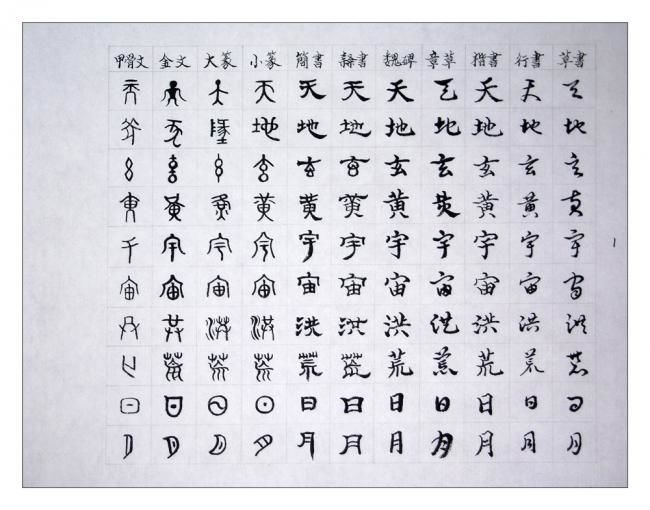 甲骨文 金文 大篆 小篆 簡書 隸書 魏碑 章草 楷書 行書 草書
天 天 天 天 天 天 天 天 天 天 天
地 地 地 地 地 地 地 地 地 地 地
玄 玄 玄 玄 玄 玄 玄 玄 玄 玄 玄
黄 黄 黄 黄 黄 黄 黄 黄 黄 黄 黄
宇 宇 宇 宇 宇 宇 宇 宇 宇 宇 宇
宙 宙 宙 宙 宙 宙 宙 宙 宙 宙 宙
洪 洪 洪 洪 洪 洪 洪 洪 洪 洪 洪
荒 荒 荒 荒 荒 荒 荒 荒 荒 荒 荒
日 日 日 日 日 日 日 日 日 日 日
月 月 月 月 月 月 月 月 月 月 月